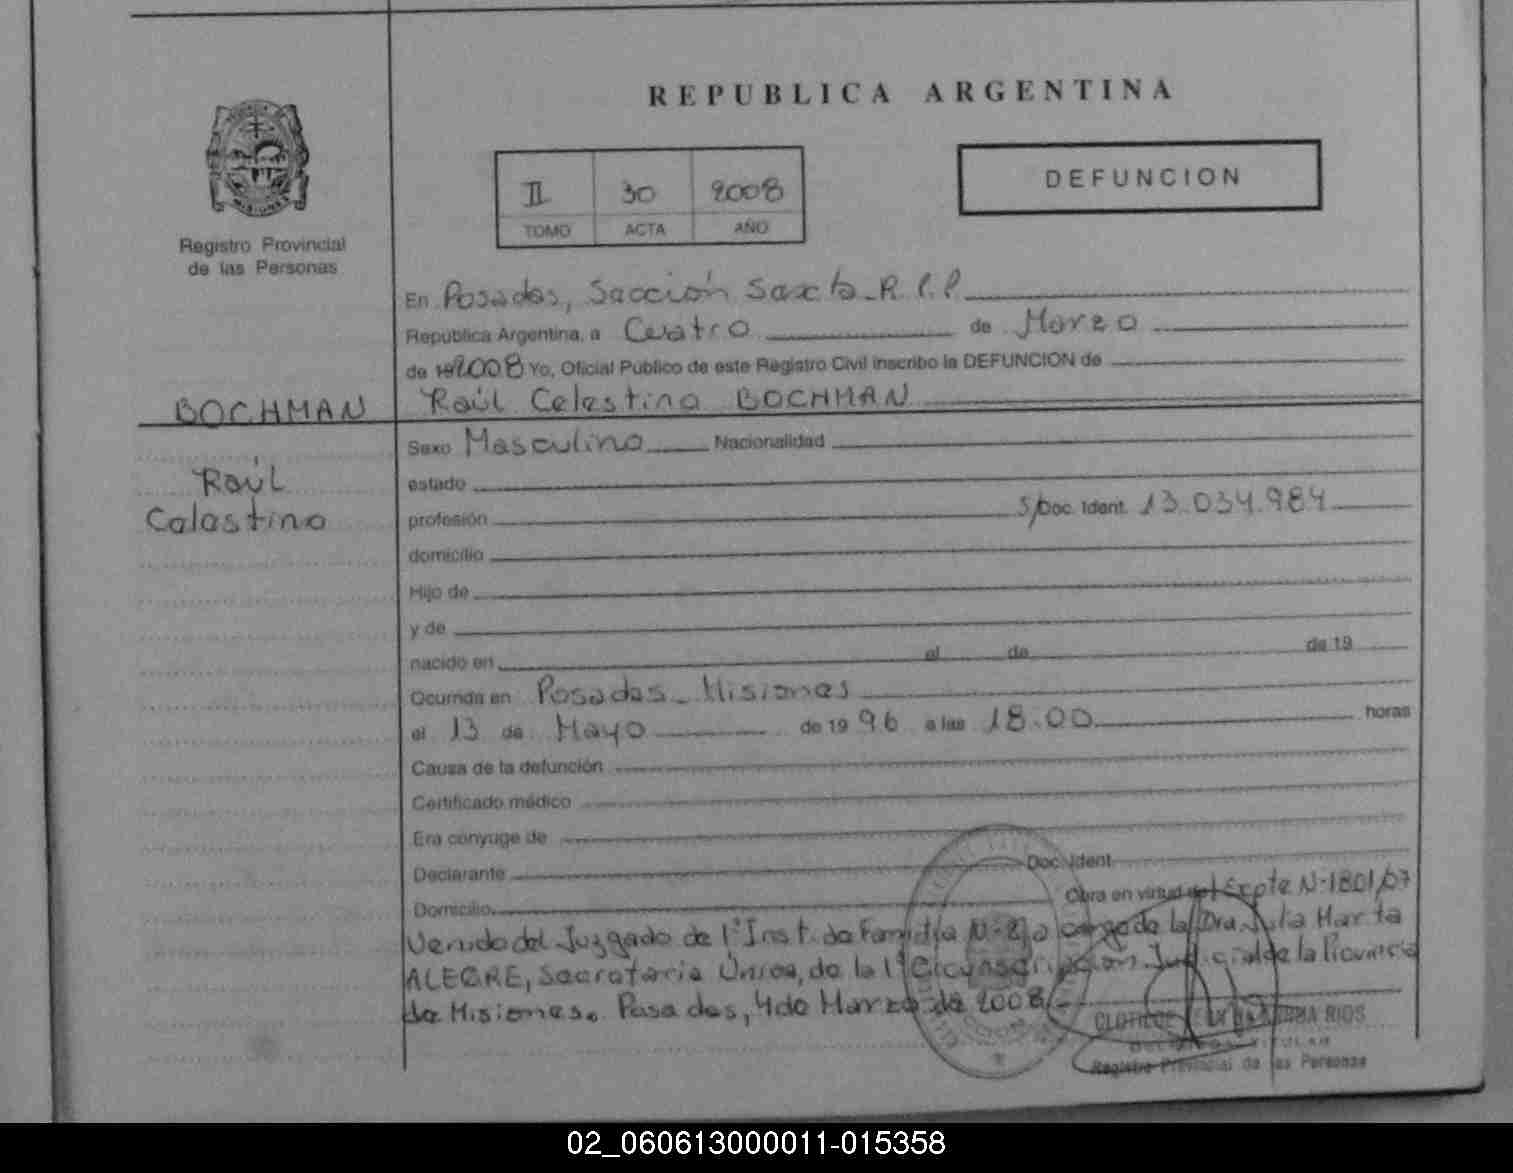 REPUBLICA ARGENTINA
II 30 2008
TOMO ACTA AÑO
DEFUNCION
MISIONES
Registro Provincial
de las Personas
En Posadas, Sección Sexta R.P.P.
República Argentina, a Cuatro de Marzo
de 192008 Yo, Oficial Público de este Registro Civil inscribo la DEFUNCION de
BOCHMAN Raúl Celestino BOCHMAN
Raúl
Celestino
Sexo Masculino Nacionalidad
estado
profesión S/Doc. Ident. 13.034.984
domicilio
Hijo de
y de
nacido en el de de 19
Ocurrida en Posadas - Misiones
el 13 de Mayo de 1996 a las 18.00 horas
Causa de la defunción
Certificado médico
Era cónyuge de
Declarante Doc. Ident.
Domicilio Obra en virtud del Expte N-1801/07
Venido del Juzgado de 1ª Inst. de Familia N-2, a cargo de la Dra. Julia Marta
ALEGRE, Secretaria Única, de la 1ª Circunscripción Judicial de la Provincia
de Misiones. Posadas, 4 de Marzo de 2008.-
CLOTILDE RIOS
TITULAR
Registro Provincial de las Personas
02_060613000011-015358